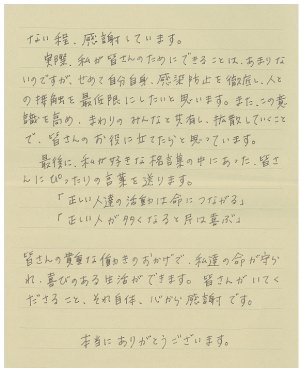 ない程、感謝しています。
実際、私が皆さんのためにできることは、あまりな
いのですが、せめて自分自身、感染防止を徹底し、人と
の接触を最低限にしたいと思います。また、この意
識を高め、まわりのみんなと共有し、拡散していくこと
で、皆さんのお役に立てたらと思っています。
最後に、私が好きな格言葉の中にあった、皆さ
んにぴったりの言葉を送ります。
「正しい人達の活動は命につながる」
「正しい人が多くなると民は喜ぶ」
皆さんの貴重な働きのおかげで、私達の命が守ら
れ、喜びのある生活ができます。皆さんがいてく
ださること、それ自体、心から感謝です。
本当にありがとうございます。